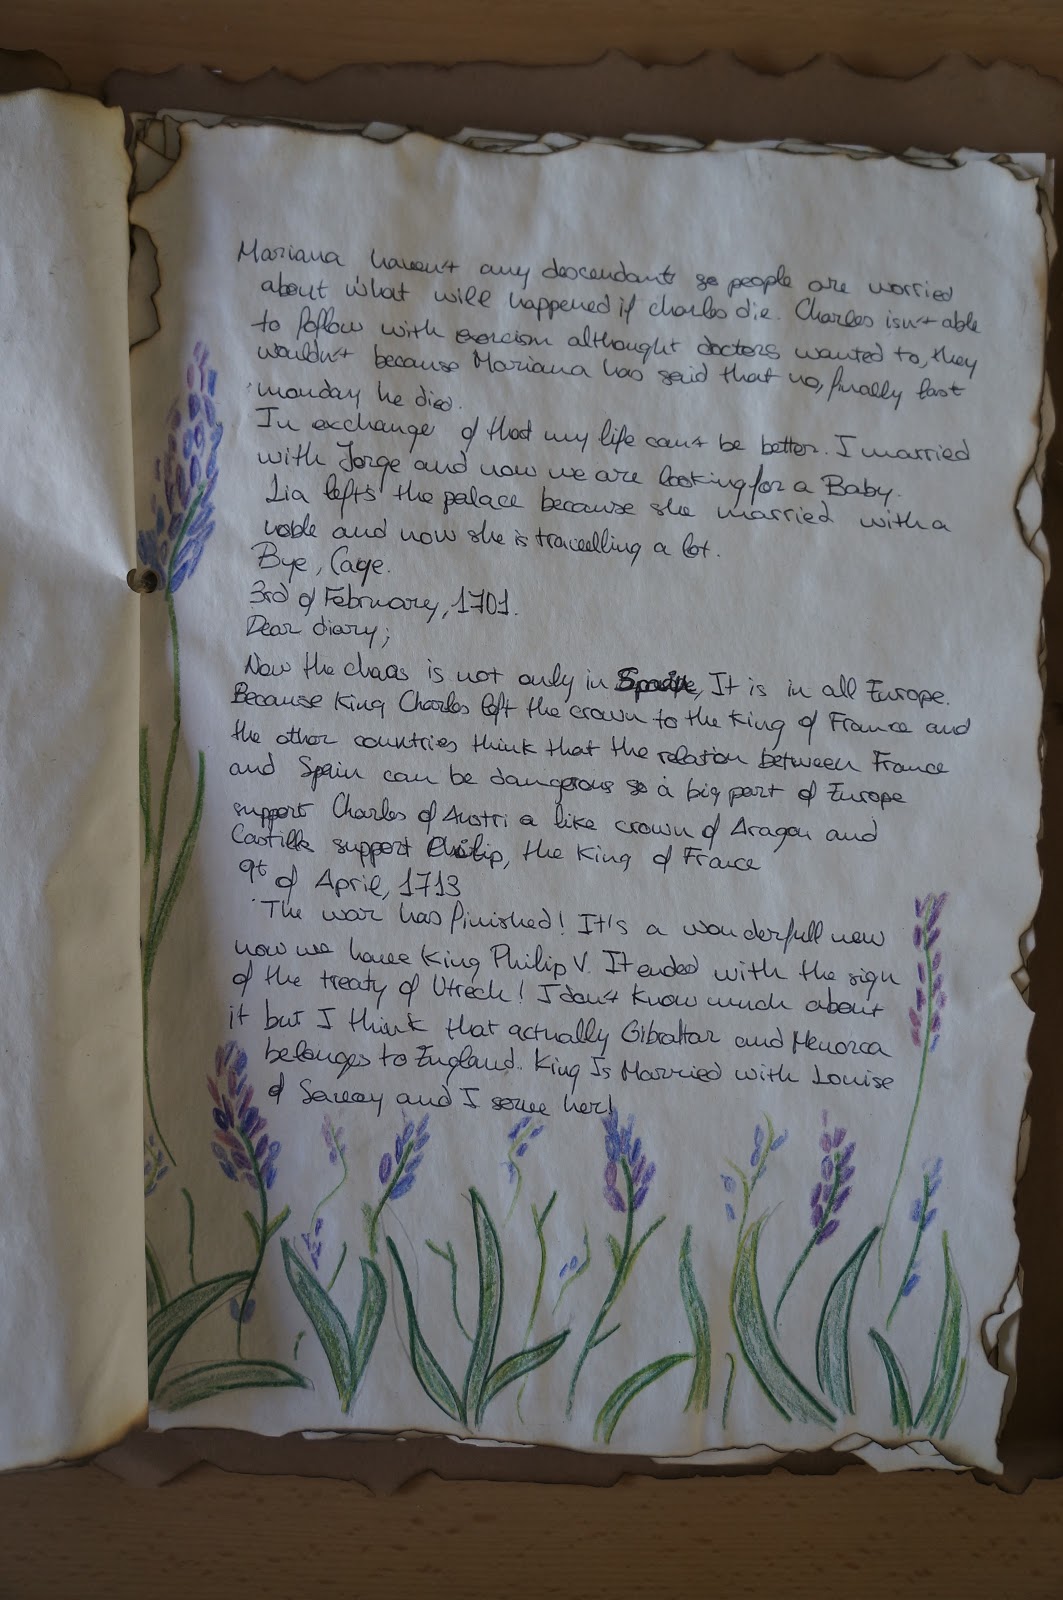 Mariana haven't any descendants so people are worried
about what will happened if charles die. Charles isn't able
to follow with exorcism althought doctors wanted to, they
wouldn't because Mariana has said that no, finally last
monday he died.
In exchange of that my life can't be better. I married
with Jorge and now we are looking for a Baby.
Lia lefts the palace because she married with a
noble and now she is travelling a lot.
Bye, Caye.
3rd of February, 1701.
Dear diary;
Now the chaos is not only in , It is in all Europe.
Because King Charles left the crown to the King of France and
the other countries think that the relation between France
and Spain can be dangerous so a big part of Europe
support Charles of Austria like crown of Aragon and
Castilla support Philip, the King of France
9t of April, 1713
The war has finished! It's a wonderfull new
now we have King Philip V. It ended with the sign
of the treaty of Utrech! I don't know much about
it but I think that actually Gibraltar and Menorca
belonges to England. King Is Married with Louise
of Savoy and I serve her!